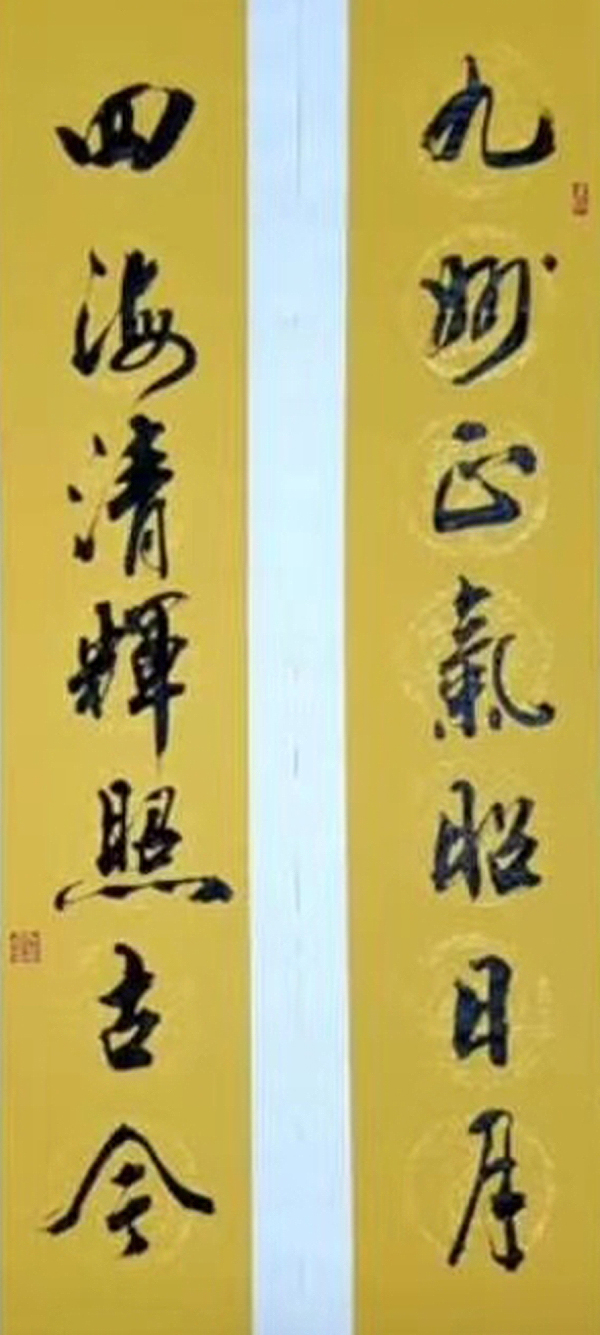 九州正氣昭日月
四海清輝照古今